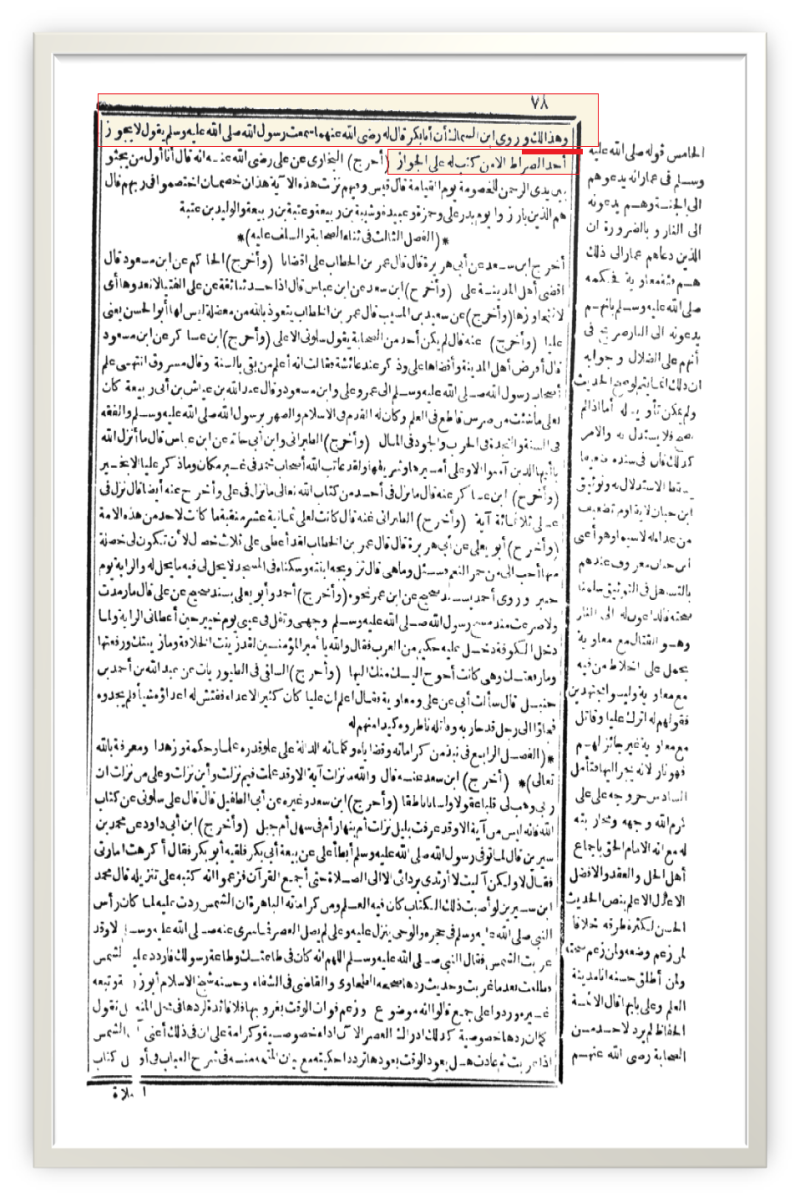 ٧٨
وهذا لك و روى ابن السماك أن أبا بكر قال له رضى الله عنهما سمعت رسول الله صلى الله عليه وسلم يقول لا يجوز
أحد الصراط الا من كتب له على الجواز (أخرج) البخارى عن على رضى الله عنه انه قال أنا أول من يجثو
بين يدى الرحمن للخصومة يوم القيامة قال قيس وفيهم نزلت هذه الآية هذان خصمان اختصموا فى ربهم قال
هم الذين بارزوا يوم بدر على وحمزة وعبيدة وشيبة بن ربيعة وعتبة بن ربيعة والوليد بن عتبة
*(الفصل الثالث فى ثناء الصحابة والسلف عليه)*
أخرج ابن سعد عن أبى هريرة قال قال عمر بن الخطاب على اقضانا (وأخرج) الحاكم عن ابن مسعود قال
اقضى أهل المدينة على (وأخرج) ابن سعد عن ابن عباس قال اذا حدثنا ثقة عن على الفتيا لا نعدوها أى
لا نتجاوزها (وأخرج) عن سعيد بن المسيب قال عمر بن الخطاب يتعوذ بالله من معضلة ليس لها أبو الحسن يعنى
عليا (وأخرج) عنه قال لم يكن أحد من الصحابة يقول سلونى الا على (وأخرج) ابن عساكر عن ابن مسعود
قال أفرض أهل المدينة وأقضاها على وذكر عند عائشة فقالت انه أعلم من بقى بالسنة وقال مسروق انتهى علم
أصحاب رسول الله صلى الله عليه وسلم الى عمر وعلى وابن مسعود وقال عبد الله بن عياش بن أبى ربيعة كان
لعلى ما شئت من ضرس قاطع فى العلم وكان له القدم فى الاسلام والصهر برسول الله صلى الله عليه وسلم والفقه
فى السنة والنجدة فى الحرب والجود فى المال (وأخرج) الطبرانى وابن أبى حاتم عن ابن عباس قال ما أنزل الله
يا أيها الذين آمنوا الا وعلى أميرها وشريفها ولقد عاتب الله أصحاب محمد فى غير مكان وما ذكر عليا الا بخير
(وأخرج) ابن عساكر عنه قال ما نزل فى أحد من كتاب الله تعالى ما نزل فى على وأخرج عنه أيضا قال نزل فى
على ثلاثمائة آية (وأخرج) الطبرانى عنه قال كانت لعلى ثمانية عشر منقبة ما كانت لاحد من هذه الامة
(وأخرج) أبو يعلى عن أبى هريرة قال قال عمر بن الخطاب لقد أعطى على ثلاث خصال لأن تكون لى خصلة
منها أحب الى من حمر النعم فسئل وما هى قال تزويجه ابنته وسكناه فى المسجد لا يحل لى فيه ما يحل له والراية يوم
خيبر وروى أحمد بسند صحيح عن ابن عمر نحوه (وأخرج) أحمد وأبو يعلى بسند صحيح عن على قال ما رمدت
ولا صرعت منذ مسح رسول الله صلى الله عليه وسلم وجهى وتفل فى عينى يوم خيبر حين أعطانى الراية ولما
دخل الكوفة دخل عليه حكيم من العرب فقال والله يا أمير المؤمنين لقد زينت الخلافة وما زينتك ورفعتها
وما رفعتك وهى كانت أحوج اليك منك اليها (وأخرج) السلفى فى الطيوريات عن عبد الله بن أحمد بن
حنبل قال سألت أبى عن على ومعاوية فقال اعلم ان عليا كان كثير الاعداء ففتش له أعداؤه شيأ فلم يجدوه
فجاؤا الى رجل قد حاربه وقاتله فاطروه كيدا منهم له
*(الفصل الرابع فى نبذ من كراماته وقضاياه وكلماته الدالة على علو قدره علما وحكمة وزهدا ومعرفة بالله
تعالى)* (أخرج) ابن سعد عنه قال والله ما نزلت آية الا وقد علمت فيم نزلت وأين نزلت وعلى من نزلت ان
ربى وهب لى قلبا عقولا ولسانا ناطقا (وأخرج) ابن سعد وغيره عن أبى الطفيل قال قال على سلونى عن كتاب
الله فانه ليس من آية الا وقد عرفت بليل نزلت أم بنهار أم فى سهل أم جبل (وأخرج) ابن أبى داود عن محمد بن
سيرين قال لما توفى رسول الله صلى الله عليه وسلم أبطأ على عن بيعة أبى بكر فلقيه أبو بكر فقال أكرهت امارتى
فقال لا ولكن آليت لا أرتدى بردائى الا الى الصلاة حتى أجمع القرآن فزعموا انه كتبه على تنزيله قال محمد
ابن سيرين لو أصبت ذلك الكتاب كان فيه العلم ومن كراماته الباهرة ان الشمس ردت عليه لما كان رأس
النبى صلى الله عليه وسلم فى حجره والوحى ينزل عليه وعلى لم يصل العصر فما سرى عنه صلى الله عليه وسلم الا وقد
غربت الشمس فقال النبى صلى الله عليه وسلم اللهم انه كان فى طاعتك وطاعة رسولك فاردد عليه الشمس
فطلعت بعد ما غربت وحديث ردها صححه الطحاوى والقاضى فى الشفاء وحسنه شيخ الاسلام أبو زرعة وتبعه
غيره وردوا على جمع قالوا انه موضوع وزعم فوات الوقت بغروبها فلا فائدة لردها فى محل المنع بل نقول
كما ان ردها خصوصية كذلك ادراك العصر الآن اداء خصوصية وكرامة على ان فى ذلك أعنى ان الشمس
اذا غربت ثم عادت هل يعود الوقت بعودها تردد حكيته مع بيان المتجه منه فى شرح العباب فى أوائل كتاب
الصلاة
الخامس قوله صلى الله عليه
وسلم فى عمار انه يدعوهم
الى الجنة وهم يدعونه
الى النار و بالضرورة ان
الذين دعاهم عمار الى ذلك
هم فئة معاوية فحكمه
صلى الله عليه وسلم بانهم
يدعونه الى النار صريح فى
أنهم على الضلال وجوابه
ان ذلك انما يتم لو صح الحديث
ولم يمكن تأويله أما اذا لم
يصح فلا يستدل به والامر
كذلك فان فى سنده ضعيفا
يسقط الاستدلال به وتوثيق
ابن حبان لا يقاوم تضعيف
من عداه له لا سيما وهو أعنى
ابن حبان معروف عندهم
بالتساهل فى التوثيق سلمنا
صحته فالداعون له الى النار
وهو القتال مع معاوية
يحمل على اخلاط من فيه
مع معاوية وليسوا مجتهدين
فقولهم له اترك عليا وقاتل
مع معاوية غير جائز لهم
فهو نار لانه يجر اليها فتأمل
السادس خروجه على على
كرم الله وجهه ومحاربته
له مع انه الامام الحق باجماع
أهل الحل والعقد والافضل
الاعدل الاعلم بنص الحديث
الحسن لكثرة طرقه خلافا
لمن زعم وضعه ولمن زعم صحته
ولمن أطلق حسنه انا مدينة
العلم وعلى بابها قال الائمة
الحفاظ لم يرد لاحد من
الصحابة رضى الله عنهم